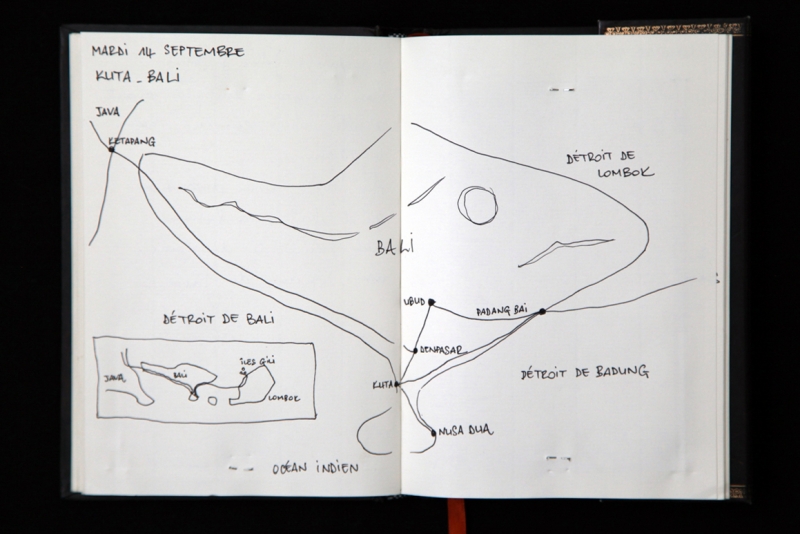 MARDI 14 SEPTEMBRE
KUTA - BALI
JAVA
KETAPANG
DÉTROIT DE
LOMBOK
BALI
UBUD
PADANG BAI
DÉTROIT DE BALI
DENPASAR
KUTA
DÉTROIT DE BADUNG
NUSA DUA
ÎLES GILI
JAVA
BALI
LOMBOK
OCÉAN INDIEN